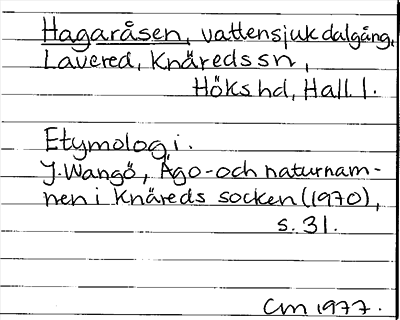 Hagaråsen, vattensjuk dalgång,
Lavered, Knäreds sn,
Höks hd, Hall. l.
Etymologi.
J. Wangö, Ägo- och naturnam-
nen i Knäreds socken (1970),
s. 31.
CM 1977.